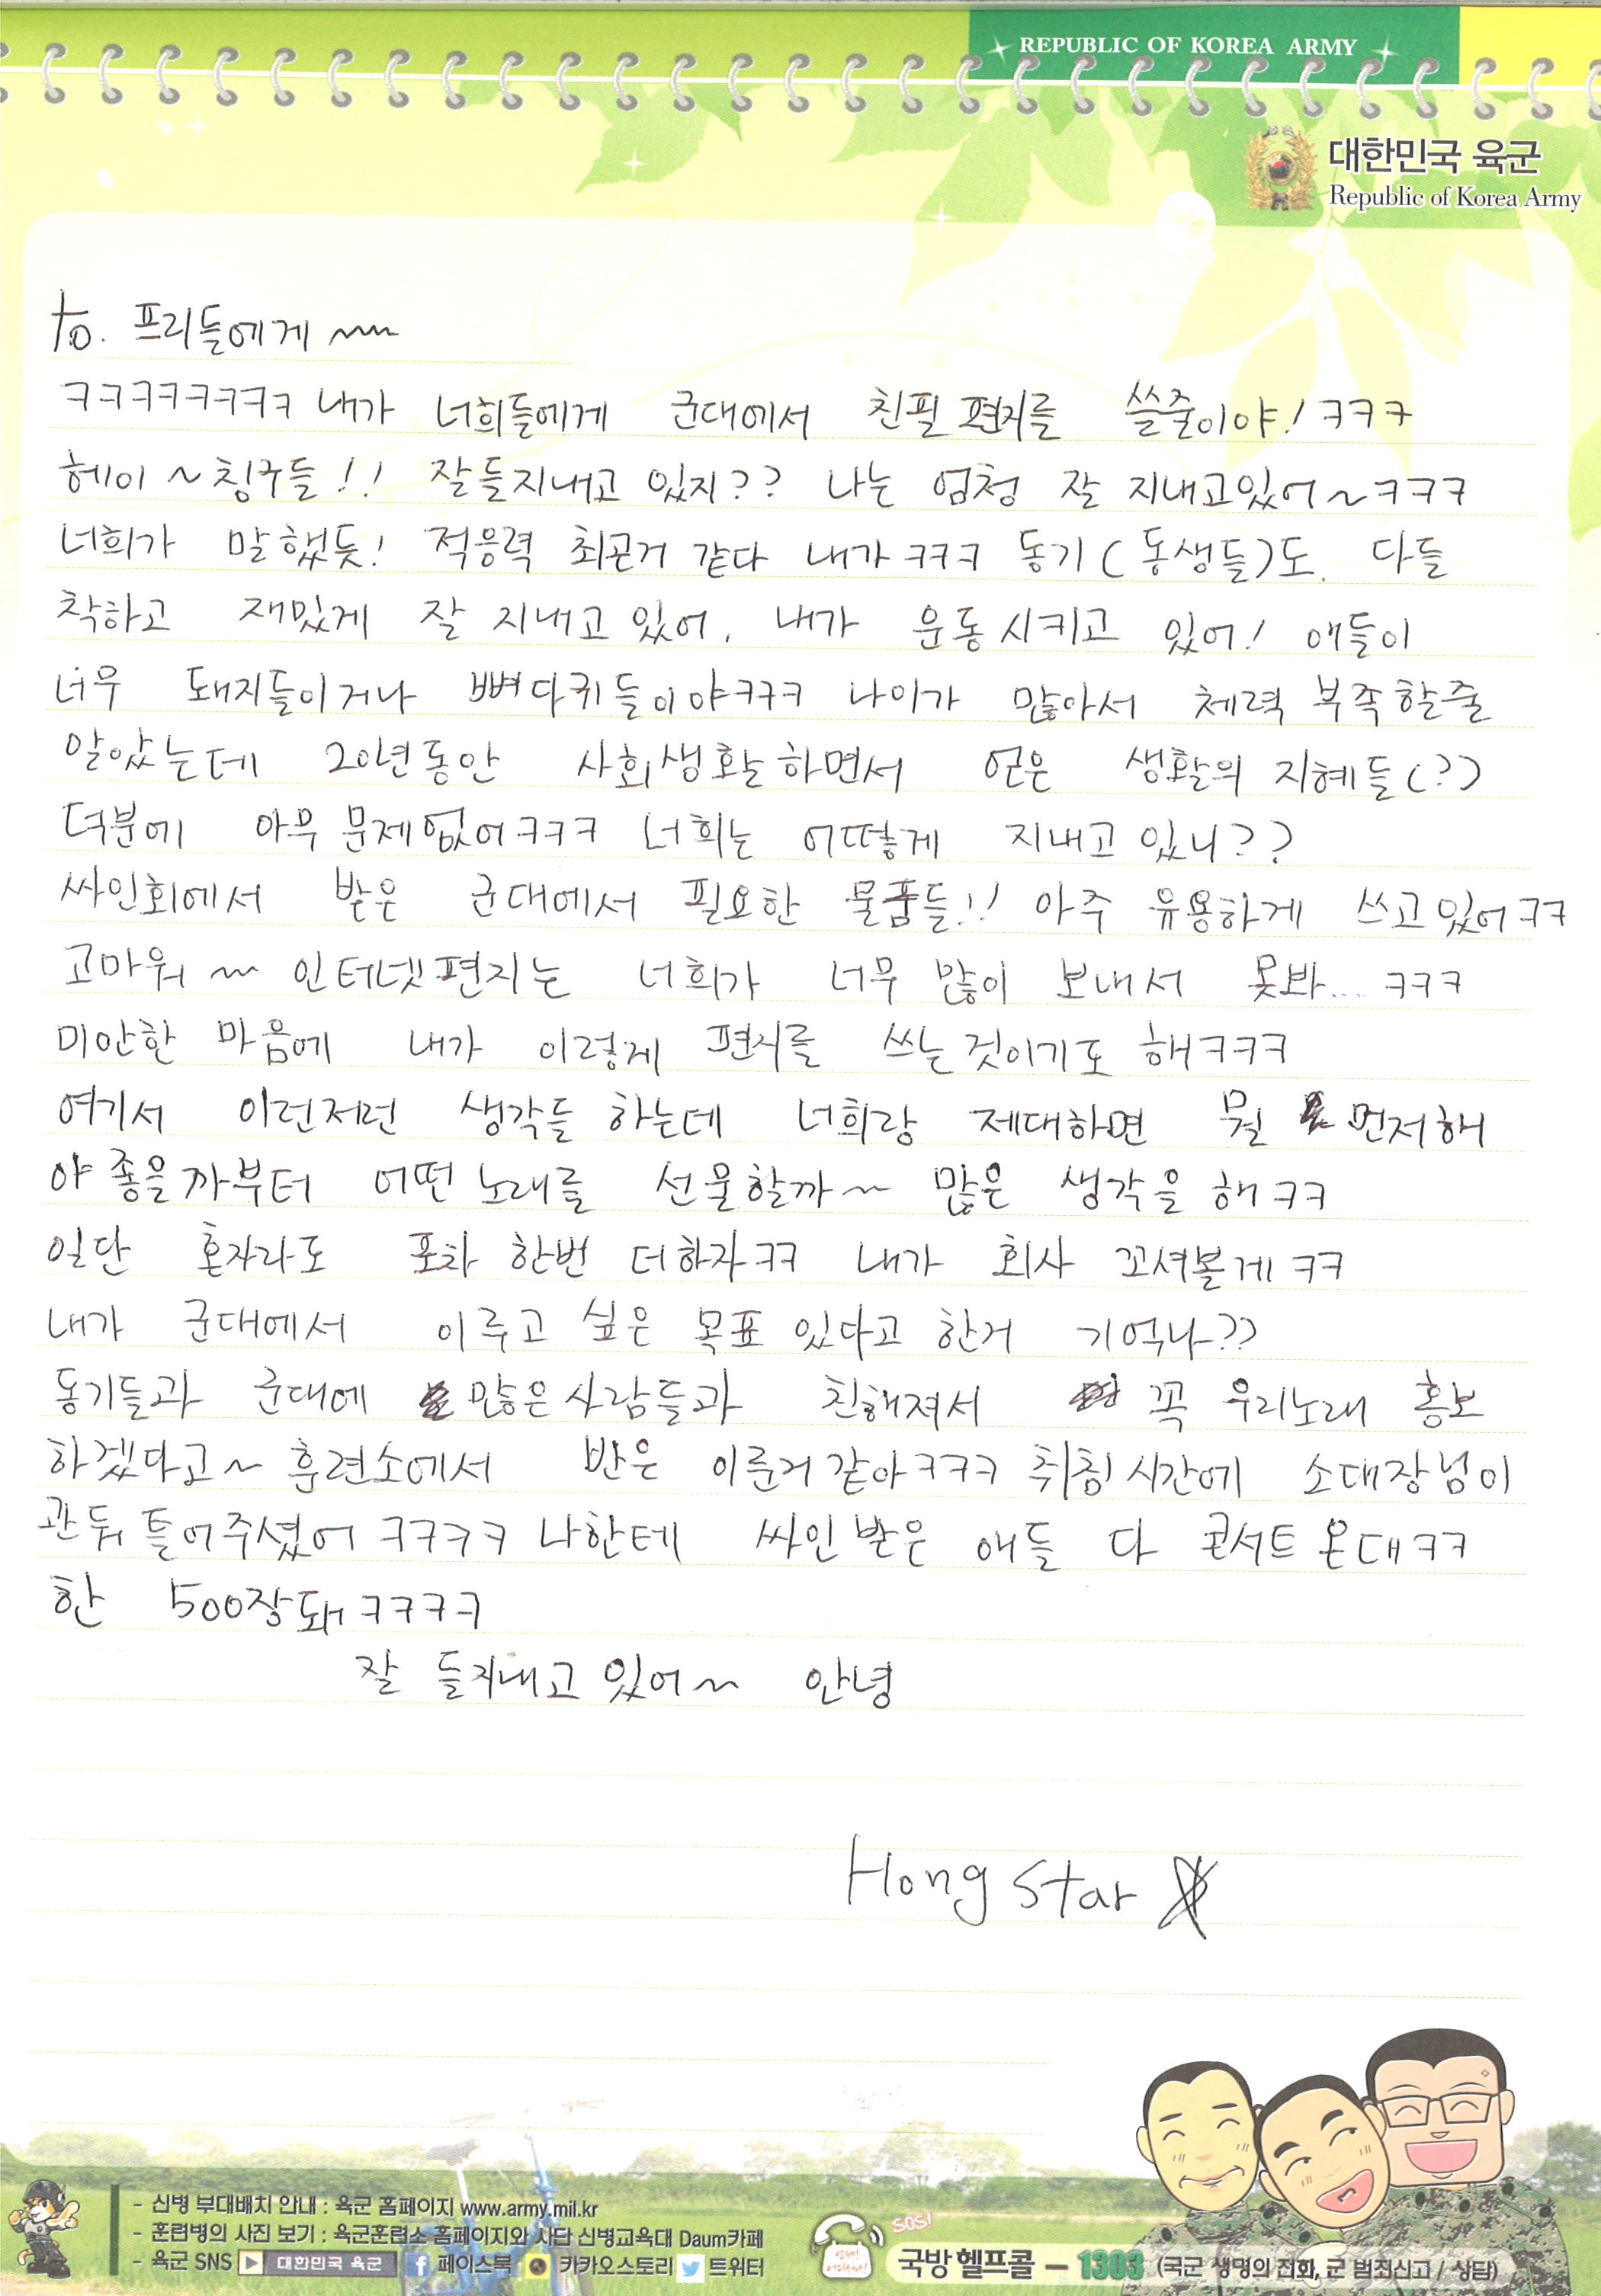 REPUBLIC OF KOREA ARMY
대한민국 육군
Republic of Korea Army
to. 프리들에게 ~~
ㅋㅋㅋㅋㅋㅋㅋㅋ 내가 너희들에게 군대에서 친필 편지를 쓸줄이야! ㅋㅋㅋ
헤이 ~ 칭구들!! 잘들지내고 있지?? 나는 엄청 잘 지내고있어~ㅋㅋㅋ
너희가 말했듯! 적응력 최곤거 같다 내가ㅋㅋㅋ 동기(동생들)도 다들
착하고 재밌게 잘 지내고 있어. 내가 운동시키고 있어! 애들이
너무 돼지들이거나 뼈다귀들이야ㅋㅋㅋ 나이가 많아서 체력 부족할줄
알았는데 20년동안 사회생활하면서 얻은 생활의 지혜들(?)
덕분에 아무 문제없어ㅋㅋㅋ 너희는 어떻게 지내고 있니??
싸인회에서 받은 군대에서 필요한 물품들!! 아주 유용하게 쓰고있어ㅋㅋ
고마워 ~ 인터넷편지는 너희가 너무 많이 보내서 못봐.... ㅋㅋㅋ
미안한 마음에 내가 이렇게 편지를 쓰는것이기도 해ㅋㅋㅋ
여기서 이런저런 생각들 하는데 너희랑 제대하면 뭘 먼저해
야 좋을까부터 어떤노래를 선물할까~ 많은 생각을 해ㅋㅋ
일단 혼자라도 포차 한번 더하자ㅋㅋ 내가 회사 꼬셔볼게ㅋㅋ
내가 군대에서 이루고 싶은 목표 있다고 한거 기억나??
동기들과 군대에 많은사람들과 친해져서 꼭 우리노래 홍보
하겠다고~ 훈련소에서 반은 이룬거같아ㅋㅋㅋ 취침시간에 소대장님이
관둬 틀어주셨어 ㅋㅋㅋㅋ 나한테 싸인받은 애들 다 콘서트온대ㅋㅋ
한 500장돼ㅋㅋㅋㅋ
잘 들지내고 있어~ 안녕
Hong Star
- 신병 부대배치 안내 : 육군 홈페이지 www.army.mil.kr
- 훈련병의 사진 보기 : 육군훈련소 홈페이지와 사단 신병교육대 Daum카페
- 육군 SNS 대한민국 육군 페이스북 카카오스토리 트위터
SOS!
국방헬프콜 - 1303 (국군 생명의 전화, 군 범죄신고 / 상담)